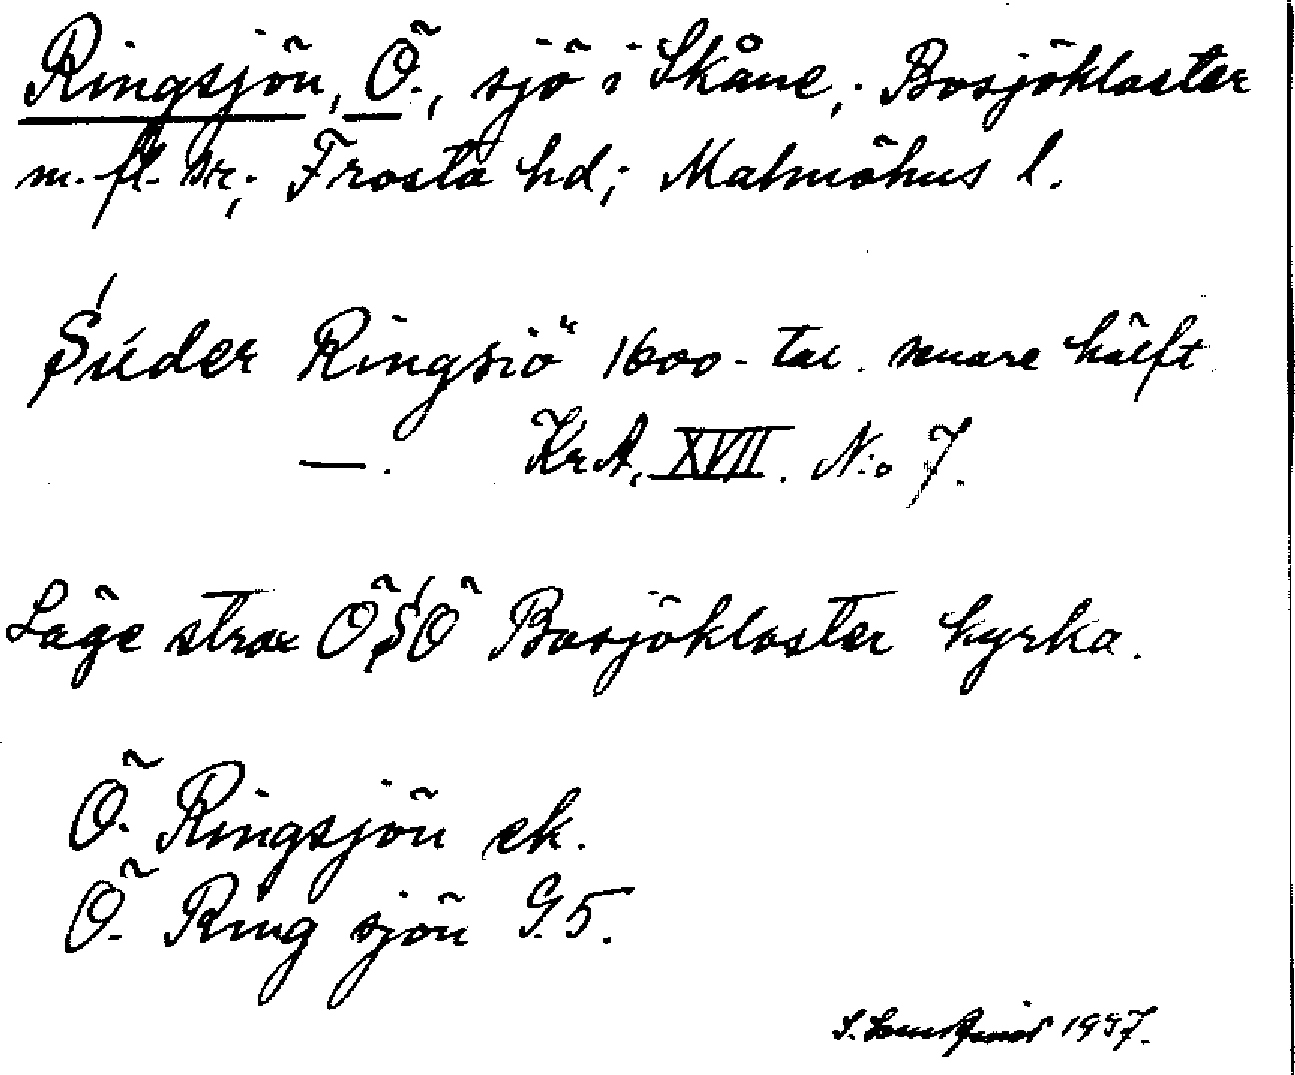 Ringsjön, Ö., sjö i Skåne; Bosjökloster
m. fl. snr; Frosta hd; Malmöhus l.
Súder Ringsiö 1600-tal. senare hälft
—. KrA, XVII. N:o 7.
Läge strax ÖSÖ Bosjökloster kyrka.
Ö. Ringsjön ek.
Ö. Ring sjön G.5.
S. 1937.